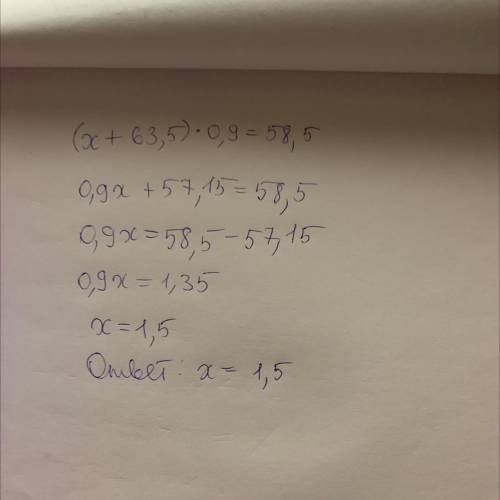 (x + 63,5) · 0,9 = 58,5
0,9x + 57,15 = 58,5
0,9x = 58,5 - 57,15
0,9x = 1,35
x = 1,5
Ответ: x = 1,5